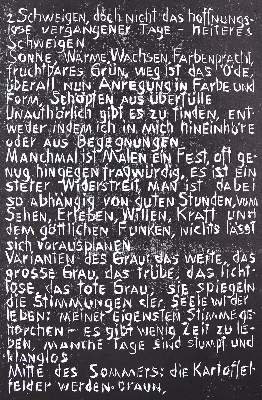 2 Schweigen, doch nicht das hoffnungs-
lose vergangener Tage - heiteres
Schweigen
Sonne, Wärme, Wachsen, Farbenpracht,
fruchtbares Grün, weg ist das Öde,
überall nun Anregung in Farbe und
Form, Schöpfen aus Überfülle
Unaufhörlich gibt es zu finden, ent-
weder indem ich in mich hineinhöre
oder aus Begegnungen.
Manchmal ist Malen ein Fest, oft ge-
nug hingegen fragwürdig, es ist ein
steter Widerstreit, man ist dabei
so abhängig von guten Stunden, vom
Sehen, Erleben, Willen, Kraft und
dem göttlichen Funken, nichts lässt
sich vorausplanen.
Varianten des Grau: das weite, das
grosse Grau, das trübe, das licht-
lose, das tote Grau, sie spiegeln
die Stimmungen der Seele wider
leben: meiner eigensten Stimme ge-
horchen - es gibt wenig Zeit zu le-
ben, manche Tage sind stumpf und
klanglos
Mitte des Sommers: die Kartoffel-
felder werden braun,